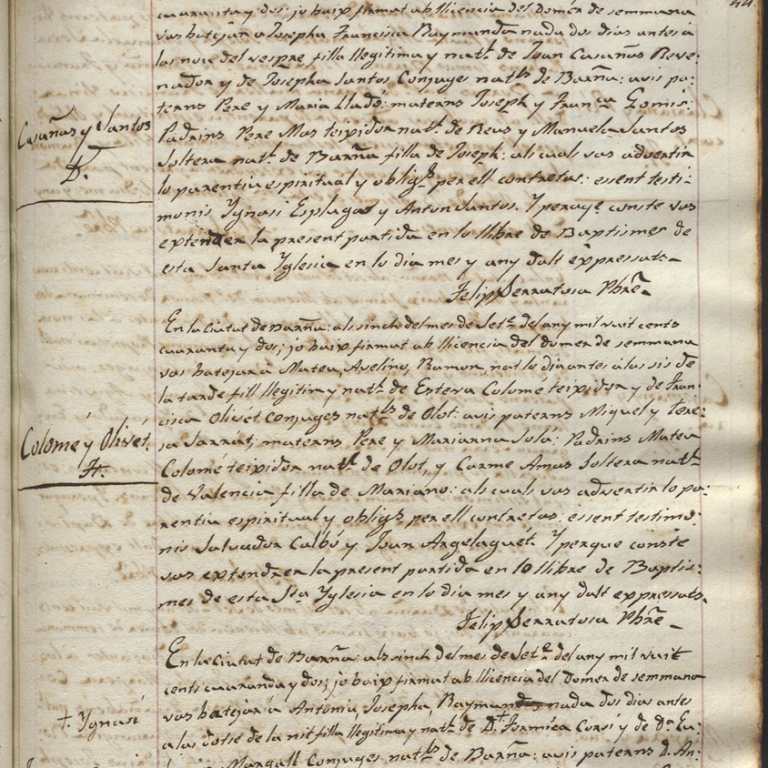 caranta y dos; jo baix firmat ab llicencia del Domer de semmana
vas batejar a Josepha Francisca Raymunda nada dos dias antes á
las nou del vespre filla llegitima y natl. de Joan Casañas Reve-
nador y de Josepha Santos Conjuges natls. de Barña: avis pa-
terns Pere y Maria Lladó: materns Joseph y Franca Gomis:
Casañas y Santos
Padrins Pere Mas teixidor natl. de Reus y Manuela Santos
Soltera natl. de Barña filla de Joseph: als cuals vas advertir
D.
lo parentiu espiritual y obligs. per ell contretas: essent testi-
monis Ygnasi Esplugas y Anton Santos. Y peraqe. conste vas
extendrer la present partida en lo llibre de Baptismes de
esta Santa Yglesia en lo dia mes y any dalt expressats.
Felip Serratosa Pbre.
En la Ciutat de Barña: als sinch del mes de Sete. del any mil vuit cents
cuaranta y dos; jo baix firmat ab llicencia del Domer de semmana
vas batejar á Mateu, Avelino, Ramon, nat lo dia antes á las sis de
la tarde fill llegitim y natl. de Esteva Colomé teixidor y de Fran-
cisca Olivét Conjuges natls. de Olot: avis paterns Miquel y Tere-
Colomé y Olivét.
sa Sarrat; materns Pere y Marianna Solá: Padrins Mateu
Colomé teixidor natl. de Olot, y Carme Amas Soltera natl.
de Valencia filla de Mariano: als cuals vas advertir lo pa-
rentiu espiritual y obligs. per ell contretas: essent testimo-
nis Salvador Calbó y Joan Argelaguét. Y perque conste
vas extendrer la present partida en lo llibre de Baptis-
mes de esta Sta. Yglesia en lo dia mes y any dalt expressats.
Felip Serratosa Pbre.
En la Ciutat de Barña: als sinch del mes de Sete. del any mil vuit
cents cuaranda y dos; jo baix firmat ab llicencia del Domer de semmana
+ Ygnasi
vas batejar á Antonia, Josepha, Raymunda nada dos dias antes
a las dotse de la nit filla llegitima y natl. de Dn. Corsi y de Da. Eu-
Margall Conjuges natls. de Barña: avis paterns D. An-